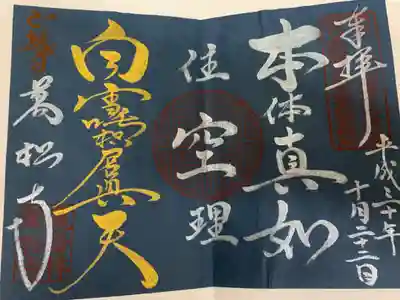 奉拝
平成三十年
十月二十二日
本体真如
住空理
白雪吒枳尼真天
萬松寺